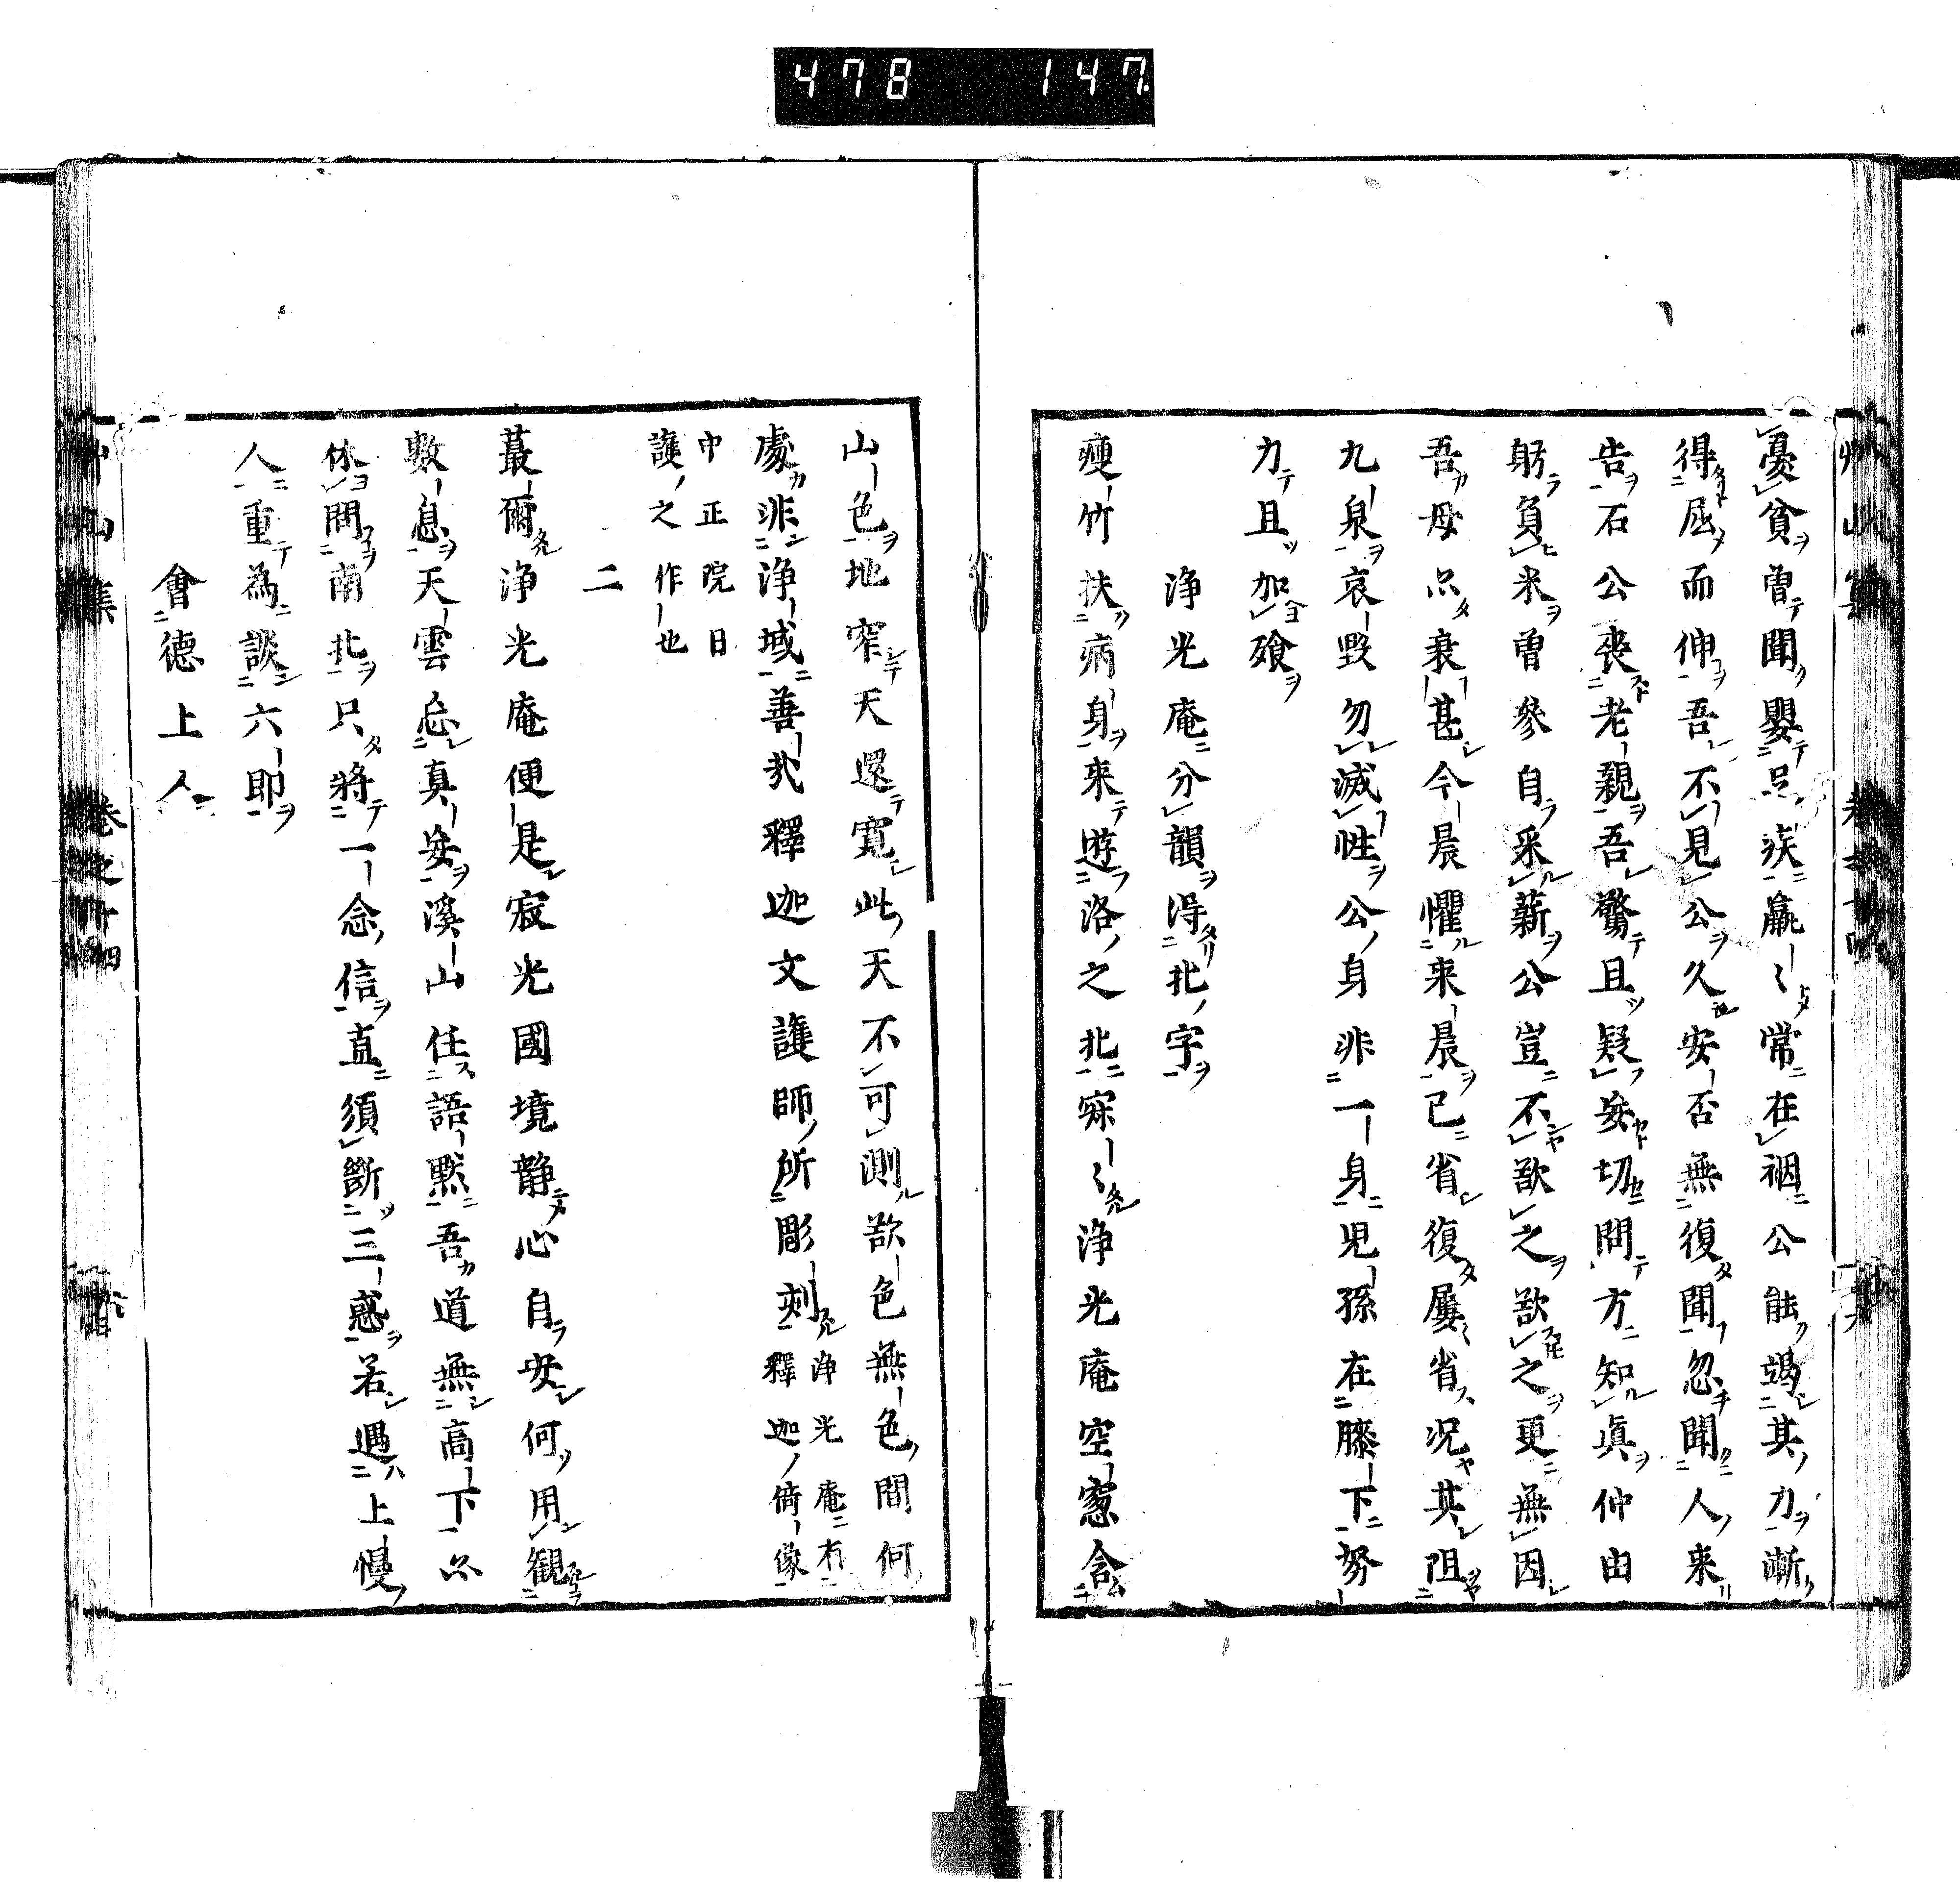 478 147.
憂貧曽聞嬰忌疾羸〻常在裀公能竭其力漸
得屈而伸吾不見公久安否無復聞忽聞人来
告石公喪老親吾驚且疑妄切問方知真仲由
躬負米曽參自采薪公豈不歆之歆之更無因
吾母尒衰甚今晨懼来晨已省復屢省況其阻
九泉哀毀勿滅性公身非一身児孫在膝下努
力且加飱
浄光庵分韻得北字
瘦竹扶病身来遊洛之北寐〻浄光庵空窓含
山色地窄天還寛此天不可測歆色無色間何
處非浄域善哉釋迦文護師所彫刻浄光庵有
釋迦脩像
中正院日
護之作也
二
蕞爾浄光庵便是寂光國境静心自安何用観
數息天雲忘真妄溪山任語黙吾道無高下尒
休問南北只將一念信直須斷三惑若遇上慢
人重為談六即
會德上人
艸山集 卷之十四